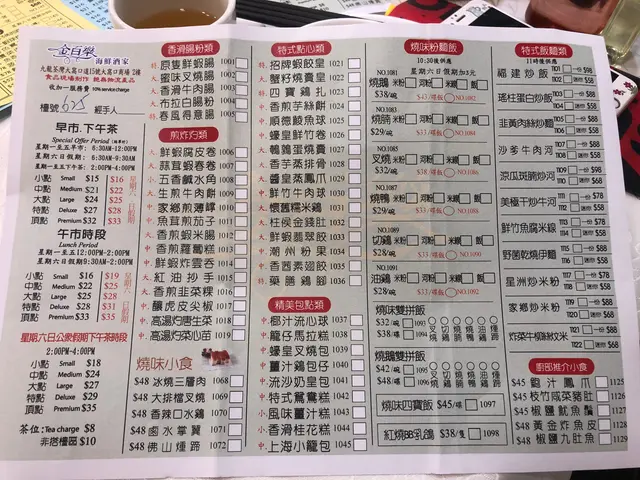 海鮮酒家
食品現場制作
收加一服務費 10% service charge
檯號 經手人
早市.下午茶
Special Offer Period
星期一至五早市: 6:30AM-12:00PM
星期六日假期: 6:30AM-9:30AM
星期一至五下午茶: 2:00PM-4:00PM
小點 Small $15 $16
中點 Medium $21 $22
大點 Large $24 $25
特點 Deluxe $27 $28
頂點 Premium $32 $33
星期六日假期
午市時段
Lunch Period
星期一至五12:00PM-2:00PM
星期六日假期9:30AM-2:00PM
小點 Small $16 $19
中點 Medium $22 $25
大點 Large $25 $28
特點 Deluxe $28 $31
頂點 Premium $33 $35
星期六日假期
星期六日公衆假期下午茶時段
2:00PM-4:00PM
小點 Small $18
中點 Medium $24
大點 Large $27
特點 Deluxe $29
頂點 Premium $35
茶位:Tea charge $8
非搭檯區 $10
香滑腸粉類
特. 原隻鮮蝦腸 1001
大. 蜜味叉燒腸 1002
大. 香滑牛肉腸 1003
大. 布拉白腸粉 1004
特. 春風得意腸 1005
煎炸归類
大. 鮮蝦腐皮卷 1006
大. 蒜茸蝦春卷 1007
小. 五香鹹水角 1008
大. 生煎牛肉餅 1009
中. 家鄉煎薄罉 1010
中. 魚茸煎茄子 1011
大. 香煎蝦米腸 1012
中. 香煎蘿蔔糕 1013
中. 鮮蝦炸雲吞 1014
大. 紅油抄手 1015
大. 香煎韭菜粿 1016
中. 釀虎皮尖椒 1017
中. 高湯灼唐生菜 1018
中. 高湯灼菜心苗 1019
燒味小食
$48 冰燒三層肉 1068
$48 大排檔叉燒 1069
$48 香辣口水鷄 1070
$48 鹵水掌翼 1071
$48 佛山燻蹄 1072
特式點心類
特. 招牌蝦餃皇 1021
大. 蟹籽燒賣皇 1022
特. 四寶鷄扎 1023
中. 香煎芋絲餅 1024
中. 順德鯪魚球 1025
中. 蠔皇鮮竹卷 1026
大. 鵪鶉蛋燒賣 1027
中. 香芋蒸排骨 1028
大. 醬皇蒸鳳爪 1029
中. 鮮竹牛肉球 1030
大. 懷舊糯米鷄 1031
大. 柱侯金錢肚 1032
中. 鮮蝦翡翠餃 1033
中. 潮州粉果 1034
中. 香茜素翅餃 1035
特. 藥膳鷄腳 1036
精美包點類
中. 椰汁流心球 1037
中. 龍仔馬拉糕 1038
中. 蠔皇叉燒包 1039
中. 薑汁鷄包仔 1040
中. 流沙奶皇包 1041
中. 特式鴛鴦糕 1042
小. 風味薑汁糕 1043
小. 香滑桂花糕 1044
中. 上海小籠包 1045
燒味粉麵飯
10:30後供應
星期六日假期加3元
NO.1081
燒鵝 米粉 河粉 米線 飯
$38/碗 $43/淨飯 NO.1082
NO.1083
燒腩 米粉 河粉 米線 飯
$29/碗 $33/淨飯 NO.1084
NO.1085
叉燒 米粉 河粉 米線 飯
$32/碗 $38/淨飯 NO.1086
NO.1087
燒鴨 米粉 河粉 米線 飯
$28/碗 $33/淨飯 NO.1088
NO.1089
切鷄 米粉 河粉 米線 飯
$28/碗 $33/淨飯 NO.1090
NO.1091
油鷄 米粉 河粉 米線 飯
$28/碗 $33/淨飯 NO.1092
燒味雙拼飯
$32/碗 1093
$38/碗 1094
燒鵝雙拼飯
$42/碗 1095
$45/碗 1096
燒味四寶飯 $45/碗 1097
紅燒BB乳鴿 $38/隻 1098
特式飯麵類
11時後供應
福建炒飯 1101 一份 $98 1102 $58
瑤柱蛋白炒飯 1103 $98 1104 $58
韭黃肉絲炒麵 1105 $98 1106 $58
沙爹牛肉河 1107 $98 1108 $58
涼瓜斑腩炒河 1109 $98 1110 $68
美極干炒牛河 1111 $88 $58
鮮竹魚腐米線 $88 $58
野菌乾燒伊麵 1115 $88 1116 $58
星洲炒米粉 1117 $88 1118 $58
家鄉炒米粉 1119 $88 1120 $58
炸菜牛柳絲炆米 1121 $88 1122 $68
廚部推介小食
$45 鮑汁鳳爪 1125
$45 枝竹咸菜豬肚 1126
$45 椒鹽魷魚鬚 1127
$48 黃金炸魚皮 1128
$48 椒鹽九肚魚 1129